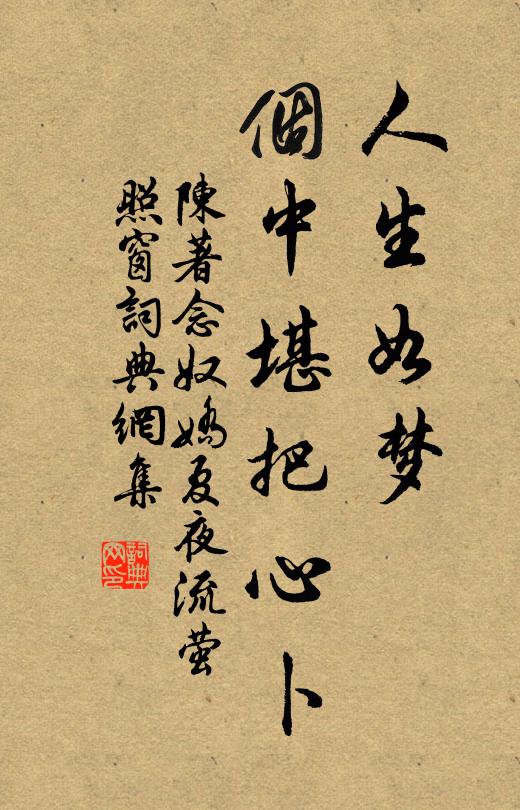 人生如梦
個中堪把心卜
陳著念奴嬌夏夜流萤
照窗詞典網集
詞典網印